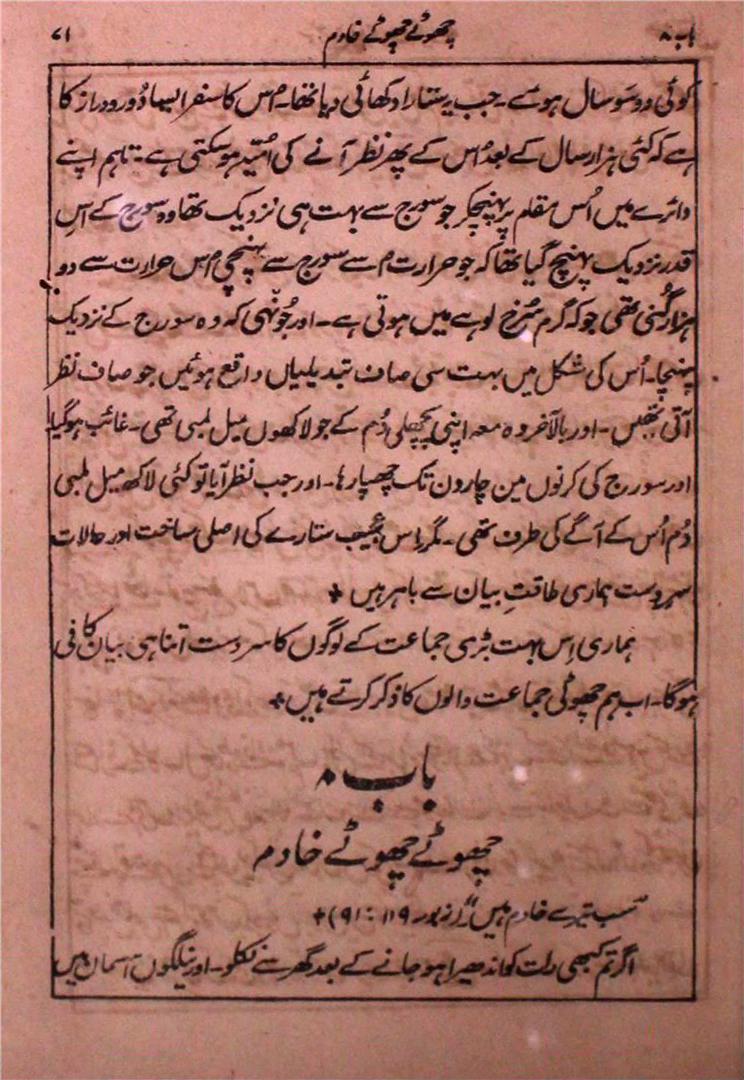 باب ۸ چھوٹے چھوٹے خادم ۷۱
کوئی دو سَو سال ہوئے۔ جب یہ ستارا دکھائی دیا تھا۔ اُس کا سفر ایسا دُور و دراز کا
ہے کہ کئی ہزار سال کے بعد اُس کے پھر نظر آنے کی اُمید ہو سکتی ہے۔ تاہم اپنے
دائرے میں اُس مقام پر پہنچکر جو سورج سے بہت ہی نزدیک تھا وہ سورج کے اس
قدر نزدیک پہنچ گیا تھا کہ جو حرارت اُسے سورج سے پہنچی اُس حرارت سے دو
ہزار گنی تھی جو کہ گرم سُرخ لوہے میں ہوتی ہے۔ اور جُونہی کہ وہ سورج کے نزدیک
پہنچا۔ اُس کی شکل میں بہت سی صاف تبدیلیاں واقع ہوئیں جو صاف نظر
آتی تھیں۔ اور بالآخر وہ معہ اپنی پچھلی دُم کے جو لاکھوں میل لمبی تھی۔ غائب ہوگیا
اور سورج کی کرنوں مین چار دن تک چھپا رہا۔ اور جب نظر آیا تو کئی لاکھ میل لمبی
دُم اُس کے آگے کی طرف تھی۔ مگر اِس عجیب ستارے کی اصلی ساخت اور حالات
سرِ دست ہماری طاقتِ بیان سے باہر ہیں +
ہماری اِس بہت بڑی جماعت کے لوگوں کا سر دست اتنا ہی بیان کافی
ہوگا۔ اب ہم چھوٹی جماعت والوں کا ذکر کرتے ہیں +
باب ۸
چھوٹے چھوٹے خادم
"سب تیرے خادم ہیں" (زبور ۱۱۹: ۹۱) +
اگر تم کبھی رات کو اندھیرا ہو جانے کے بعد گھر سے نکلو۔ اور نیلگوں آسمان میں